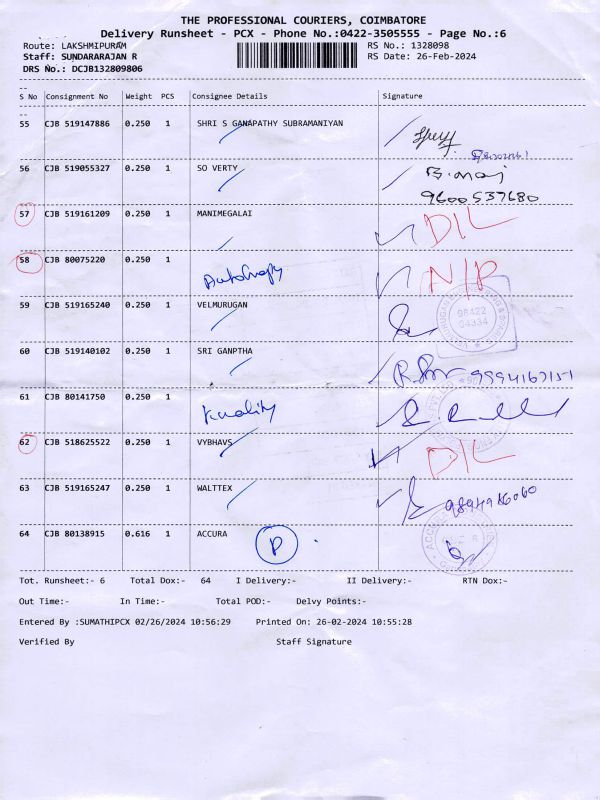 THE PROFESSIONAL COURIERS, COIMBATORE
Delivery Runsheet - PCX - Phone No.:0422-3505555 - Page No.:6
Route: LAKSHMIPURAM RS No.: 1328098
Staff: SUNDARARAJAN R RS Date: 26-Feb-2024
DRS No.: DCJB132809806
S No Consignment No Weight PCS Consignee Details Signature
55 CJB 519147886 0.250 1 SHRI S GANAPATHY SUBRAMANIYAN
56 CJB 519055327 0.250 1 SO VERTY
9600537680
57 CJB 519161209 0.250 1 MANIMEGALAI D/L
58 CJB 80075220 0.250 1 N/P
59 CJB 519165240 0.250 1 VELMURUGAN
98422
04334
60 CJB 519140102 0.250 1 SRI GANPTHA
61 CJB 80141750 0.250 1
62 CJB 518625522 0.250 1 VYBHAVS D/L
63 CJB 519165247 0.250 1 WALTTEX
64 CJB 80138915 0.616 1 ACCURA P
Tot. Runsheet:- 6 Total Dox:- 64 I Delivery:- II Delivery:- RTN Dox:-
Out Time:- In Time:- Total POD:- Delvy Points:-
Entered By :SUMATHIPCX 02/26/2024 10:56:29 Printed On: 26-02-2024 10:55:28
Verified By Staff Signature